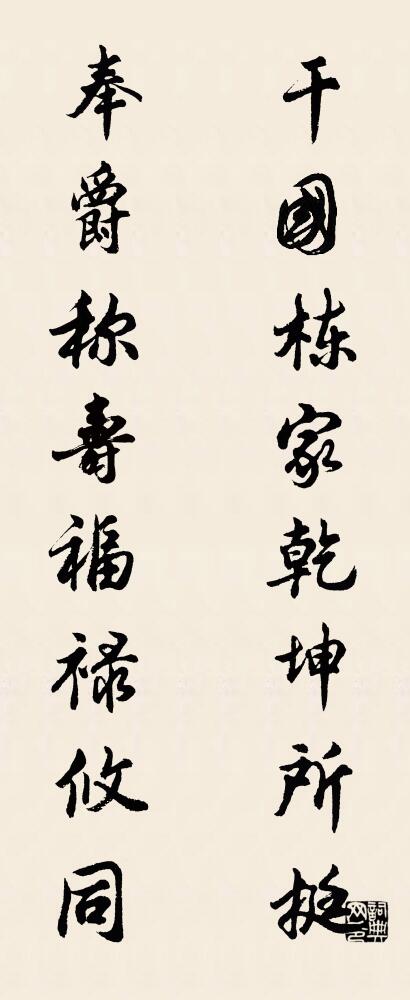 干國栋家乾坤所挺
奉爵称壽福禄攸同
詞典网